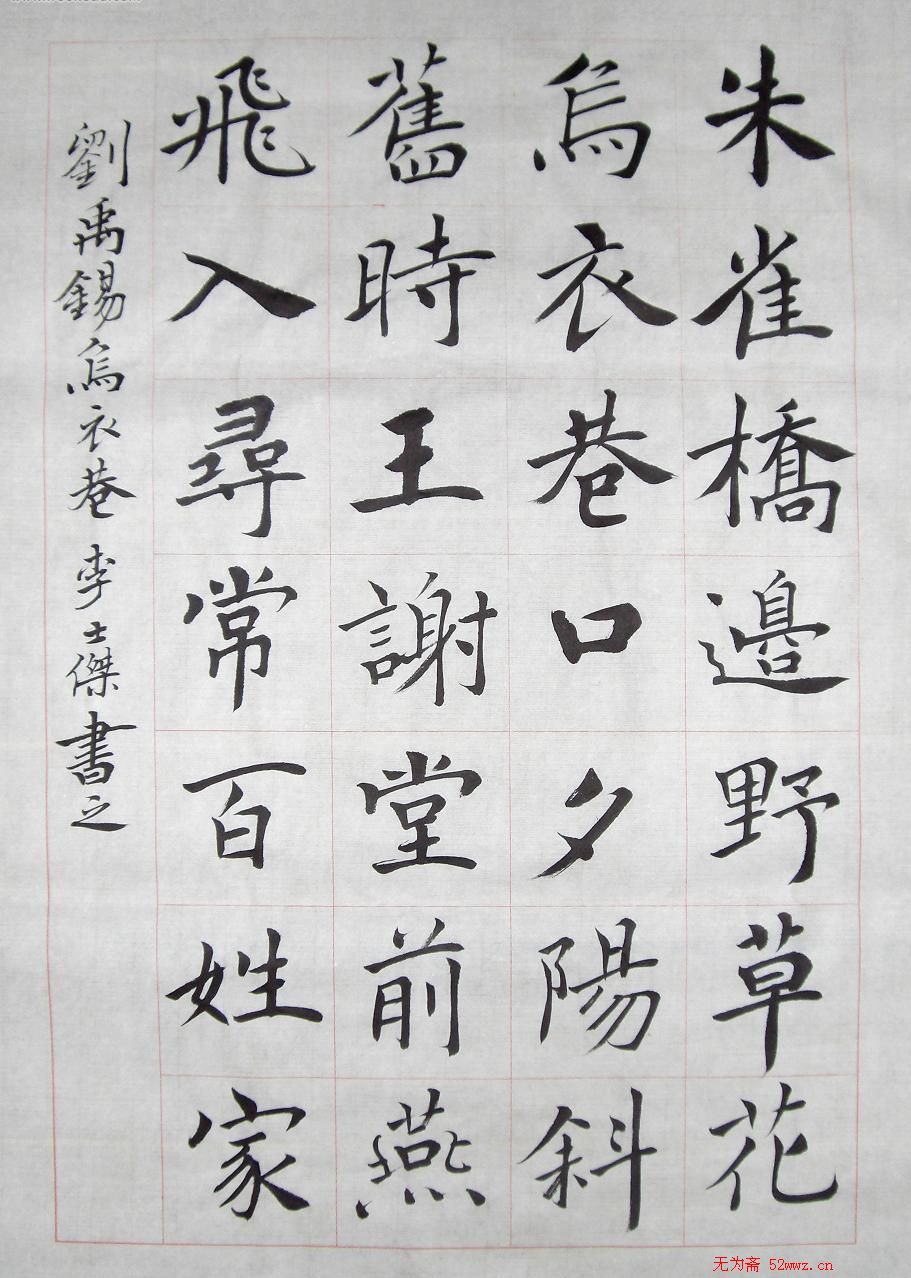 朱雀橋邊野草花
烏衣巷口夕陽斜
舊時王謝堂前燕
飛入尋常百姓家
劉禹錫烏衣巷 李士傑書之
无为斋 52wwz.cn